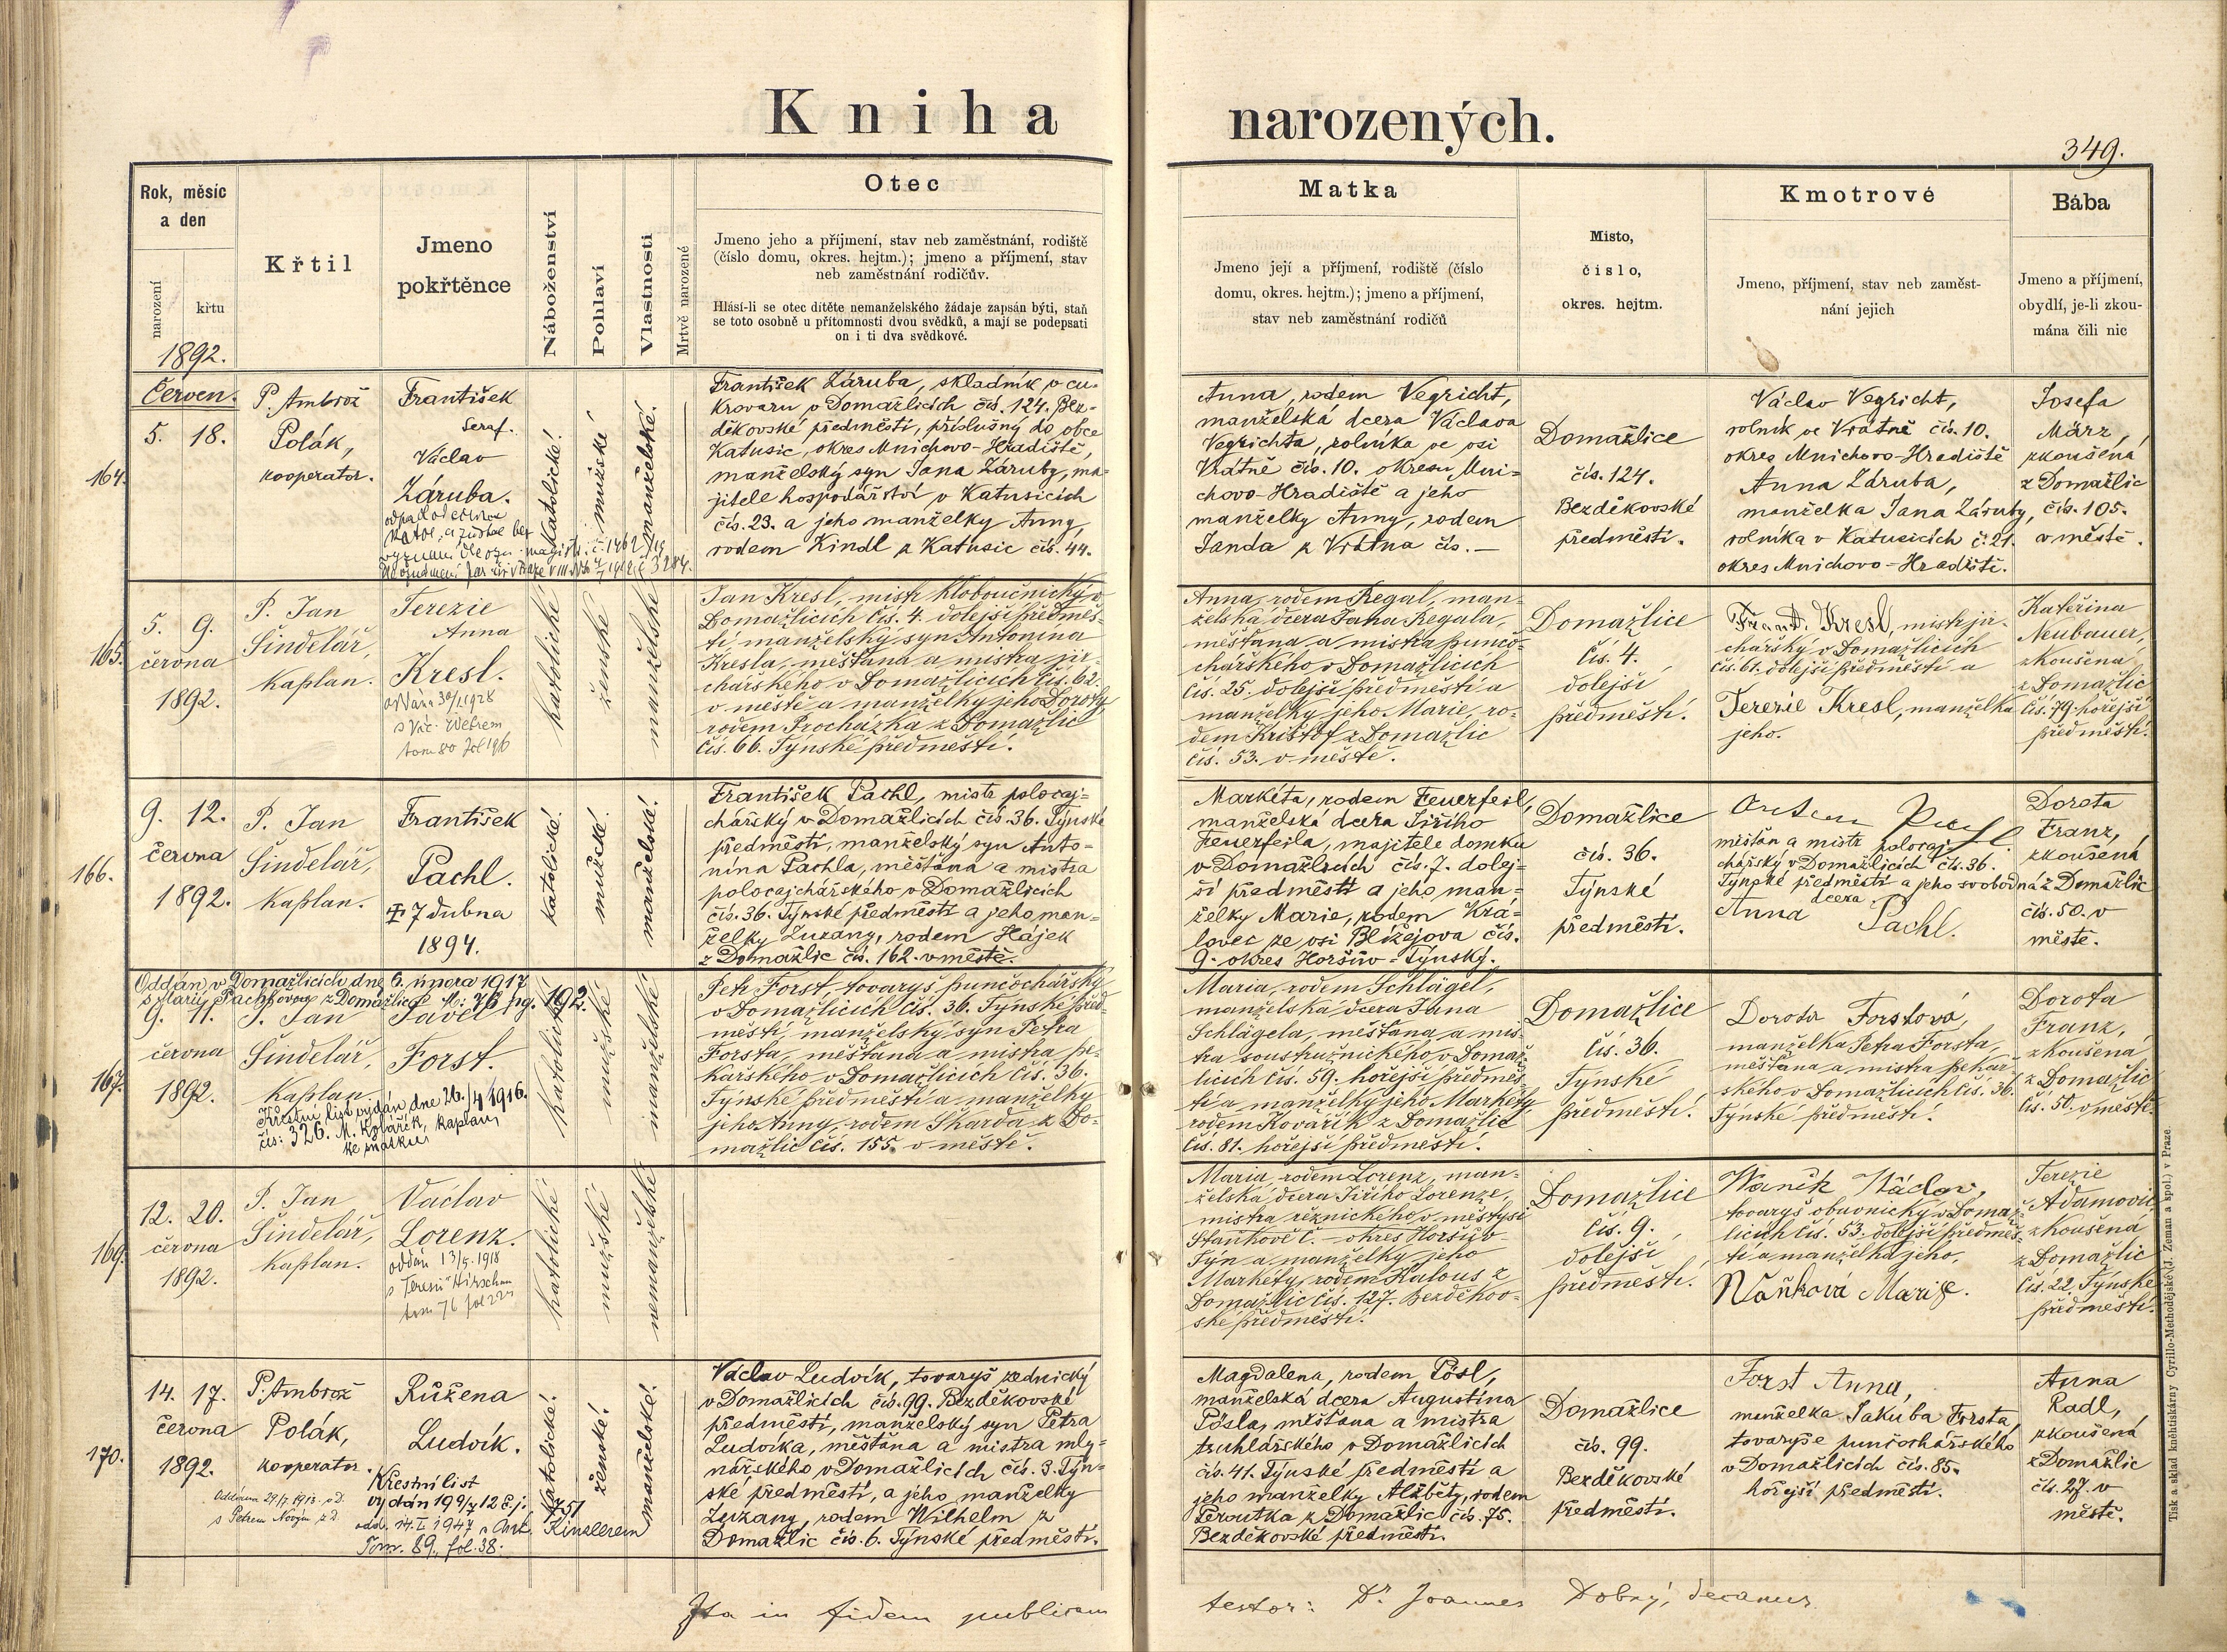 Kniha narozených.
349.
Rok, měsíc
a den
narození
křtu
1892.
Křtil
Jmeno
pokřtěnce
Náboženství
Pohlaví
Vlastnosti
Mrtvě narozené
Otec
Jmeno jeho a příjmení, stav neb zaměstnání, rodiště
(číslo domu, okres. hejtm.); jmeno a příjmení, stav
neb zaměstnání rodičův.
Hlásí-li se otec dítěte nemanželského žádaje zapsán býti, staň
se toto osobně u přítomnosti dvou svědků, a mají se podepsati
on i ti dva svědkové.
Matka
Jmeno její a příjmení, rodiště (číslo
domu, okres. hejtm.); jmeno a příjmení,
stav neb zaměstnání rodičů
Misto,
číslo,
okres. hejtm.
Kmotrové
Jmeno, příjmení, stav neb zaměst-
nání jejich
Bába
Jmeno a příjmení,
obydlí, je-li zkou-
mána čili nic
164.
Červen.
5. 18.
P. Ambrož
Polák,
kooperator.
František
Seraf.
Václav
Záruba.
katolické!
mužské
manželské!
František Záruba, skladník v cu-
krovaru v Domažlicích čís. 124. Bez-
děkovské předměstí, příslušný do obce
Katusic, okres Mnichovo-Hradiště,
manželský syn Jana Záruby, ma-
jitele hospodářství v Katusicích
čís. 23. a jeho manželky Anny,
rodem Kindl z Katusic čís. 44.
Anna, rodem Vegricht,
manželská dcera Václava
Vegrichta, rolníka ve vsi
Vrátně čís. 10. okresu Mni-
chovo-Hradiště a jeho
manželky Anny, rodem
Janda z Vrátna čís. —
Domažlice
čís. 124.
Bezděkovské
předměstí.
Václav Vegricht,
rolník ve Vrátně čís. 10.
okres Mnichovo-Hradiště
Anna Záruba,
manželka Jana Záruby,
rolníka v Katusicích č. 21.
okres Mnichovo-Hradiště.
Josefa
März,
zkoušená
z Domažlic
čís. 105.
v městě.
165.
5. 9.
června
1892.
P. Jan
Šindelář,
kaplan.
Terezie
Anna
Kresl.
oddána 30/1 1928
s Vác. Webrem
tom 80 fol 196
katolické
ženské
manželské
Jan Kresl, mistr kloboučnický v
Domažlicích čís. 4. dolejší předměs-
tí manželský syn Antonína
Kresla, měšťana a mistra jir-
chářského v Domažlicích čís. 62.
v městě a manželky jeho Doroty,
rodem Procházka z Domažlic
čís. 66. Týnské předměstí.
Anna, rodem Regal, man-
želská dcera Jana Regala,
měšťana a mistra punčo-
chářského v Domažlicích
čís. 25. dolejší předměstí a
manželky jeho Marie, ro-
dem Krištof z Domažlic
čís. 53. v městě.
Domažlice
čís. 4.
dolejší
předměstí.
Frant. Kresl, mistr jir-
chářský v Domažlicích
čís. 61. dolejší předměstí a
Terezie Kresl, manželka
jeho.
Kateřina
Neubauer,
zkoušená
z Domažlic
čís. 79. hořejší
předměstí.
166.
9. 12.
června
1892.
P. Jan
Šindelář,
kaplan.
František
Pachl.
7 dubna
1894.
katolické.
mužské.
manželské.
František Pachl, mistr polocaj-
chářský v Domažlicích čís. 36. Týnské
předměstí, manželský syn Anto-
nína Pachla, měšťana a mistra
polocajchářského v Domažlicích
čís. 36. Týnské předměstí a jeho man-
želky Zuzany, rodem Hájek
z Domažlic čís. 162. v městě.
Markéta, rodem Feuerfeil,
manželská dcera Jiřího
Feuerfeila, majitele domku
v Domažlicích čís. 7. dolej-
ší předměstí a jeho man-
želky Marie, rodem Krá-
lovec ze vsi Blížejova čís.
9. okres Horšův-Týnský.
Domažlice
čís. 36.
Týnské
předměstí.
měšťan a mistr polocaj-
chářský v Domažlicích čís. 36.
Týnské předměstí a jeho svobodná
dcera
Anna Pachl.
Dorota
Franz,
zkoušená
z Domažlic
čís. 50. v
městě.
167.
Oddán v Domažlicích dne 6. února 1917
s Marií Pachlovou z Domažlic M: 76 pg. 192.
9. 11.
června
1892.
P. Jan
Šindelář,
kaplan.
Pavel
Forst.
Křestní list vydán dne 26./4 1916.
čís: 326. M. Kovářík, kaplan
katolické
mužské
manželské
Petr Forst, tovaryš punčochářský
v Domažlicích čís. 36. Týnské před-
městí manželský syn Petra
Forsta, měšťana a mistra pe-
kařského v Domažlicích čís. 36.
Týnské předměstí a manželky
jeho Anny, rodem Škarda z Do-
mažlic čís. 155. v městě.
Maria, rodem Schlägel,
manželská dcera Jana
Schlägela, měšťana a mis-
tra soustružnického v Domaž-
licích čís. 59. hořejší předměs-
tí a manželky jeho Markéty
rodem Kovařík z Domažlic
čís. 81. hořejší předměstí.
Domažlice
čís. 36.
Týnské
předměstí.
Dorota Forstová,
manželka Petra Forsta,
měšťana a mistra pekař-
ského v Domažlicích čís. 36.
Týnské předměstí.
Dorota
Franz,
zkoušená
z Domažlic
čís. 50. v městě.
169.
12. 20.
června
1892.
P. Jan
Šindelář,
kaplan.
Václav
Lorenz.
oddán 13/5 1918
s Terezií
tom 76
katolické
mužské
nemanželské
Maria, rodem Lorenz, man-
želská dcera Jiřího Lorenze,
mistra řeznického v městysi
Staňkově č. — okres Horšův-
Týn a manželky jeho
Markéty, rodem Kalous z
Domažlic čís. 127. Bezděkov-
ské předměstí.
Domažlice
čís. 9.
dolejší
předměstí.
Waněk Václav,
tovaryš obuvnický v Domaž-
licích čís. 53. dolejší předměs-
tí a manželka jeho,
Vaňková Marie.
Terezie
Adamovic,
zkoušená
z Domažlic
čís. 22. Týnské
předměstí.
170.
14. 17.
června
1892.
P. Ambrož
Polák,
kooperator.
Růžena
Ludvík.
Křestní list
vydán 19 9/7 12 č. j. 751
odd. 14. I. 1947 s Ant. Kinzlerem
Tom. 89, fol. 38.
katolické!
ženské!
manželské!
Václav Ludvík, tovaryš zednický
v Domažlicích čís. 99. Bezděkovské
předměstí, manželský syn Petra
Ludvíka, měšťana a mistra mly-
nářského v Domažlicích čís. 3. Týn-
ské předměstí, a jeho manželky
Zuzany, rodem Wilhelm z
Domažlic čís. 6. Týnské předměstí.
Magdalena, rodem Pösl,
manželská dcera Augustina
Pösla, měšťana a mistra
truhlářského v Domažlicích
čís. 41. Týnské předměstí a
jeho manželky Alžběty, rodem
Peroutka z Domažlic čís. 75.
Bezděkovské předměstí.
Domažlice
čís. 99.
Bezděkovské
předměstí.
Forst Anna,
manželka Jakuba Forsta,
tovaryše punčochářského
v Domažlicích čís. 85.
hořejší předměstí.
Anna
Radl,
zkoušená
z Domažlic
čís. 27. v
městě.
Ita in fidem publicam testor: Dr. Joannes Dobrý, decanus
Tisk a sklad knihtiskárny Cyrillo-Methodějské (J. Zeman a spol.) v Praze.